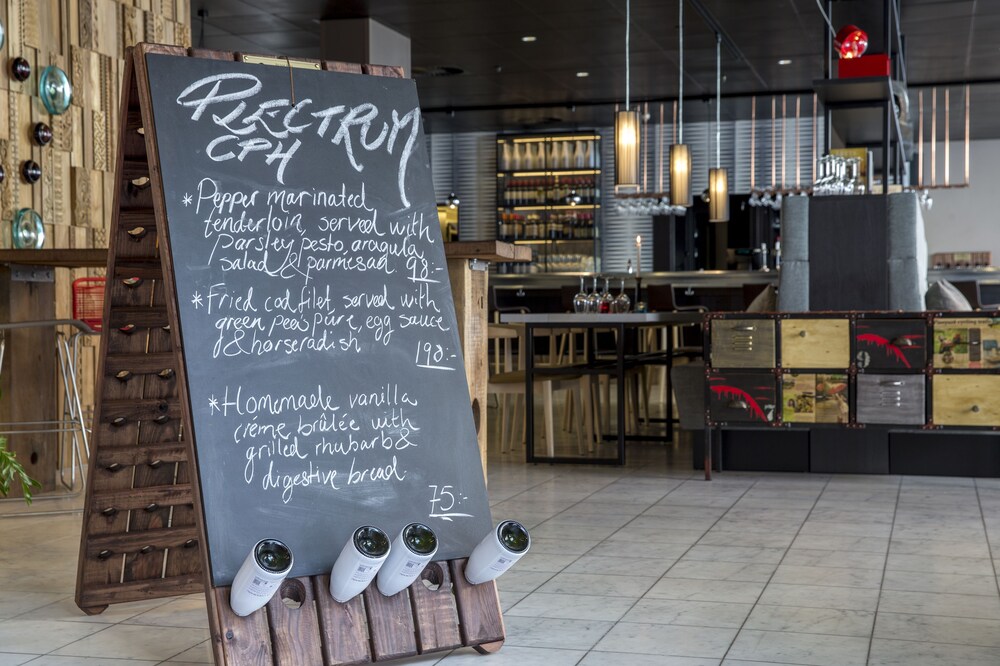 PLECTRUM
CPH
*Pepper marinated
tenderloin, served with
parsley pesto, aragula
salad & parmesan 98:-
*Fried cod filet, served with
green peas pure, egg sauce
& horseradish
198:-
*Homemade vanilla
crème brûlée with
grilled rhubarb &
digestive bread.
75:-